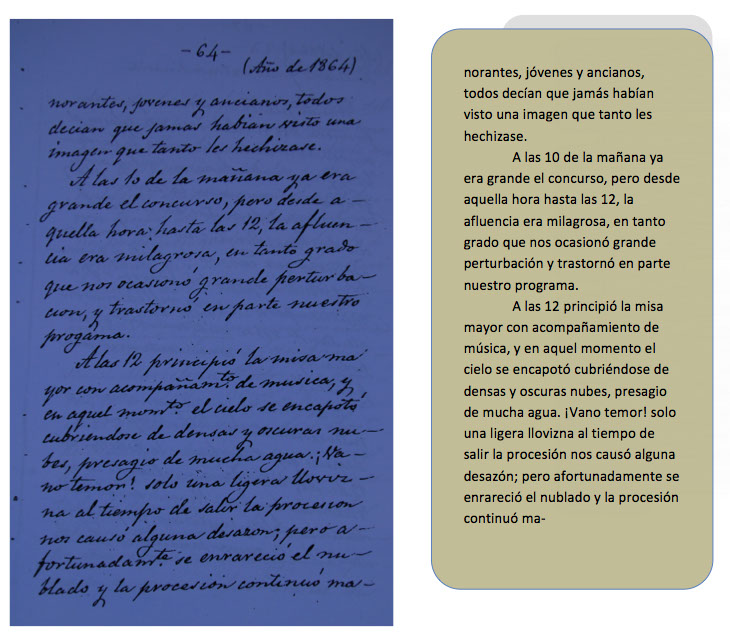 -64-
(Año de 1864)
norantes, jovenes y ancianos, todos
decian que jamas habian visto una
imagen que tanto les hechizase.
A las 10 de la mañana ya era
grande el concurso, pero desde a-
quella hora hasta las 12, la afluen-
cia era milagrosa, en tanto grado
que nos ocasionó grande perturba-
cion, y trastornó en parte nuestro
progama.
A las 12 principió la misa ma
yor con acompañamto de musica, y,
en aquel momto el cielo se encapotó
cubriendose de densas y oscuras nu-
bes, presagio de mucha agua. ¡Va-
no temor! solo una ligera lloviz-
na al tiempo de salir la procesion
nos causó alguna desazon; pero a-
fortunadamte se enrareció el nu-
blado y la procesión continuó ma-
norantes, jóvenes y ancianos,
todos decían que jamás habían
visto una imagen que tanto les
hechizase.
A las 10 de la mañana ya
era grande el concurso, pero desde
aquella hora hasta las 12, la
afluencia era milagrosa, en tanto
grado que nos ocasionó grande
perturbación y trastornó en parte
nuestro programa.
A las 12 principió la misa
mayor con acompañamiento de
música, y en aquel momento el
cielo se encapotó cubriéndose de
densas y oscuras nubes, presagio
de mucha agua. ¡Vano temor! solo
una ligera llovizna al tiempo de
salir la procesión nos causó alguna
desazón; pero afortunadamente se
enrareció el nublado y la procesión
continuó ma-